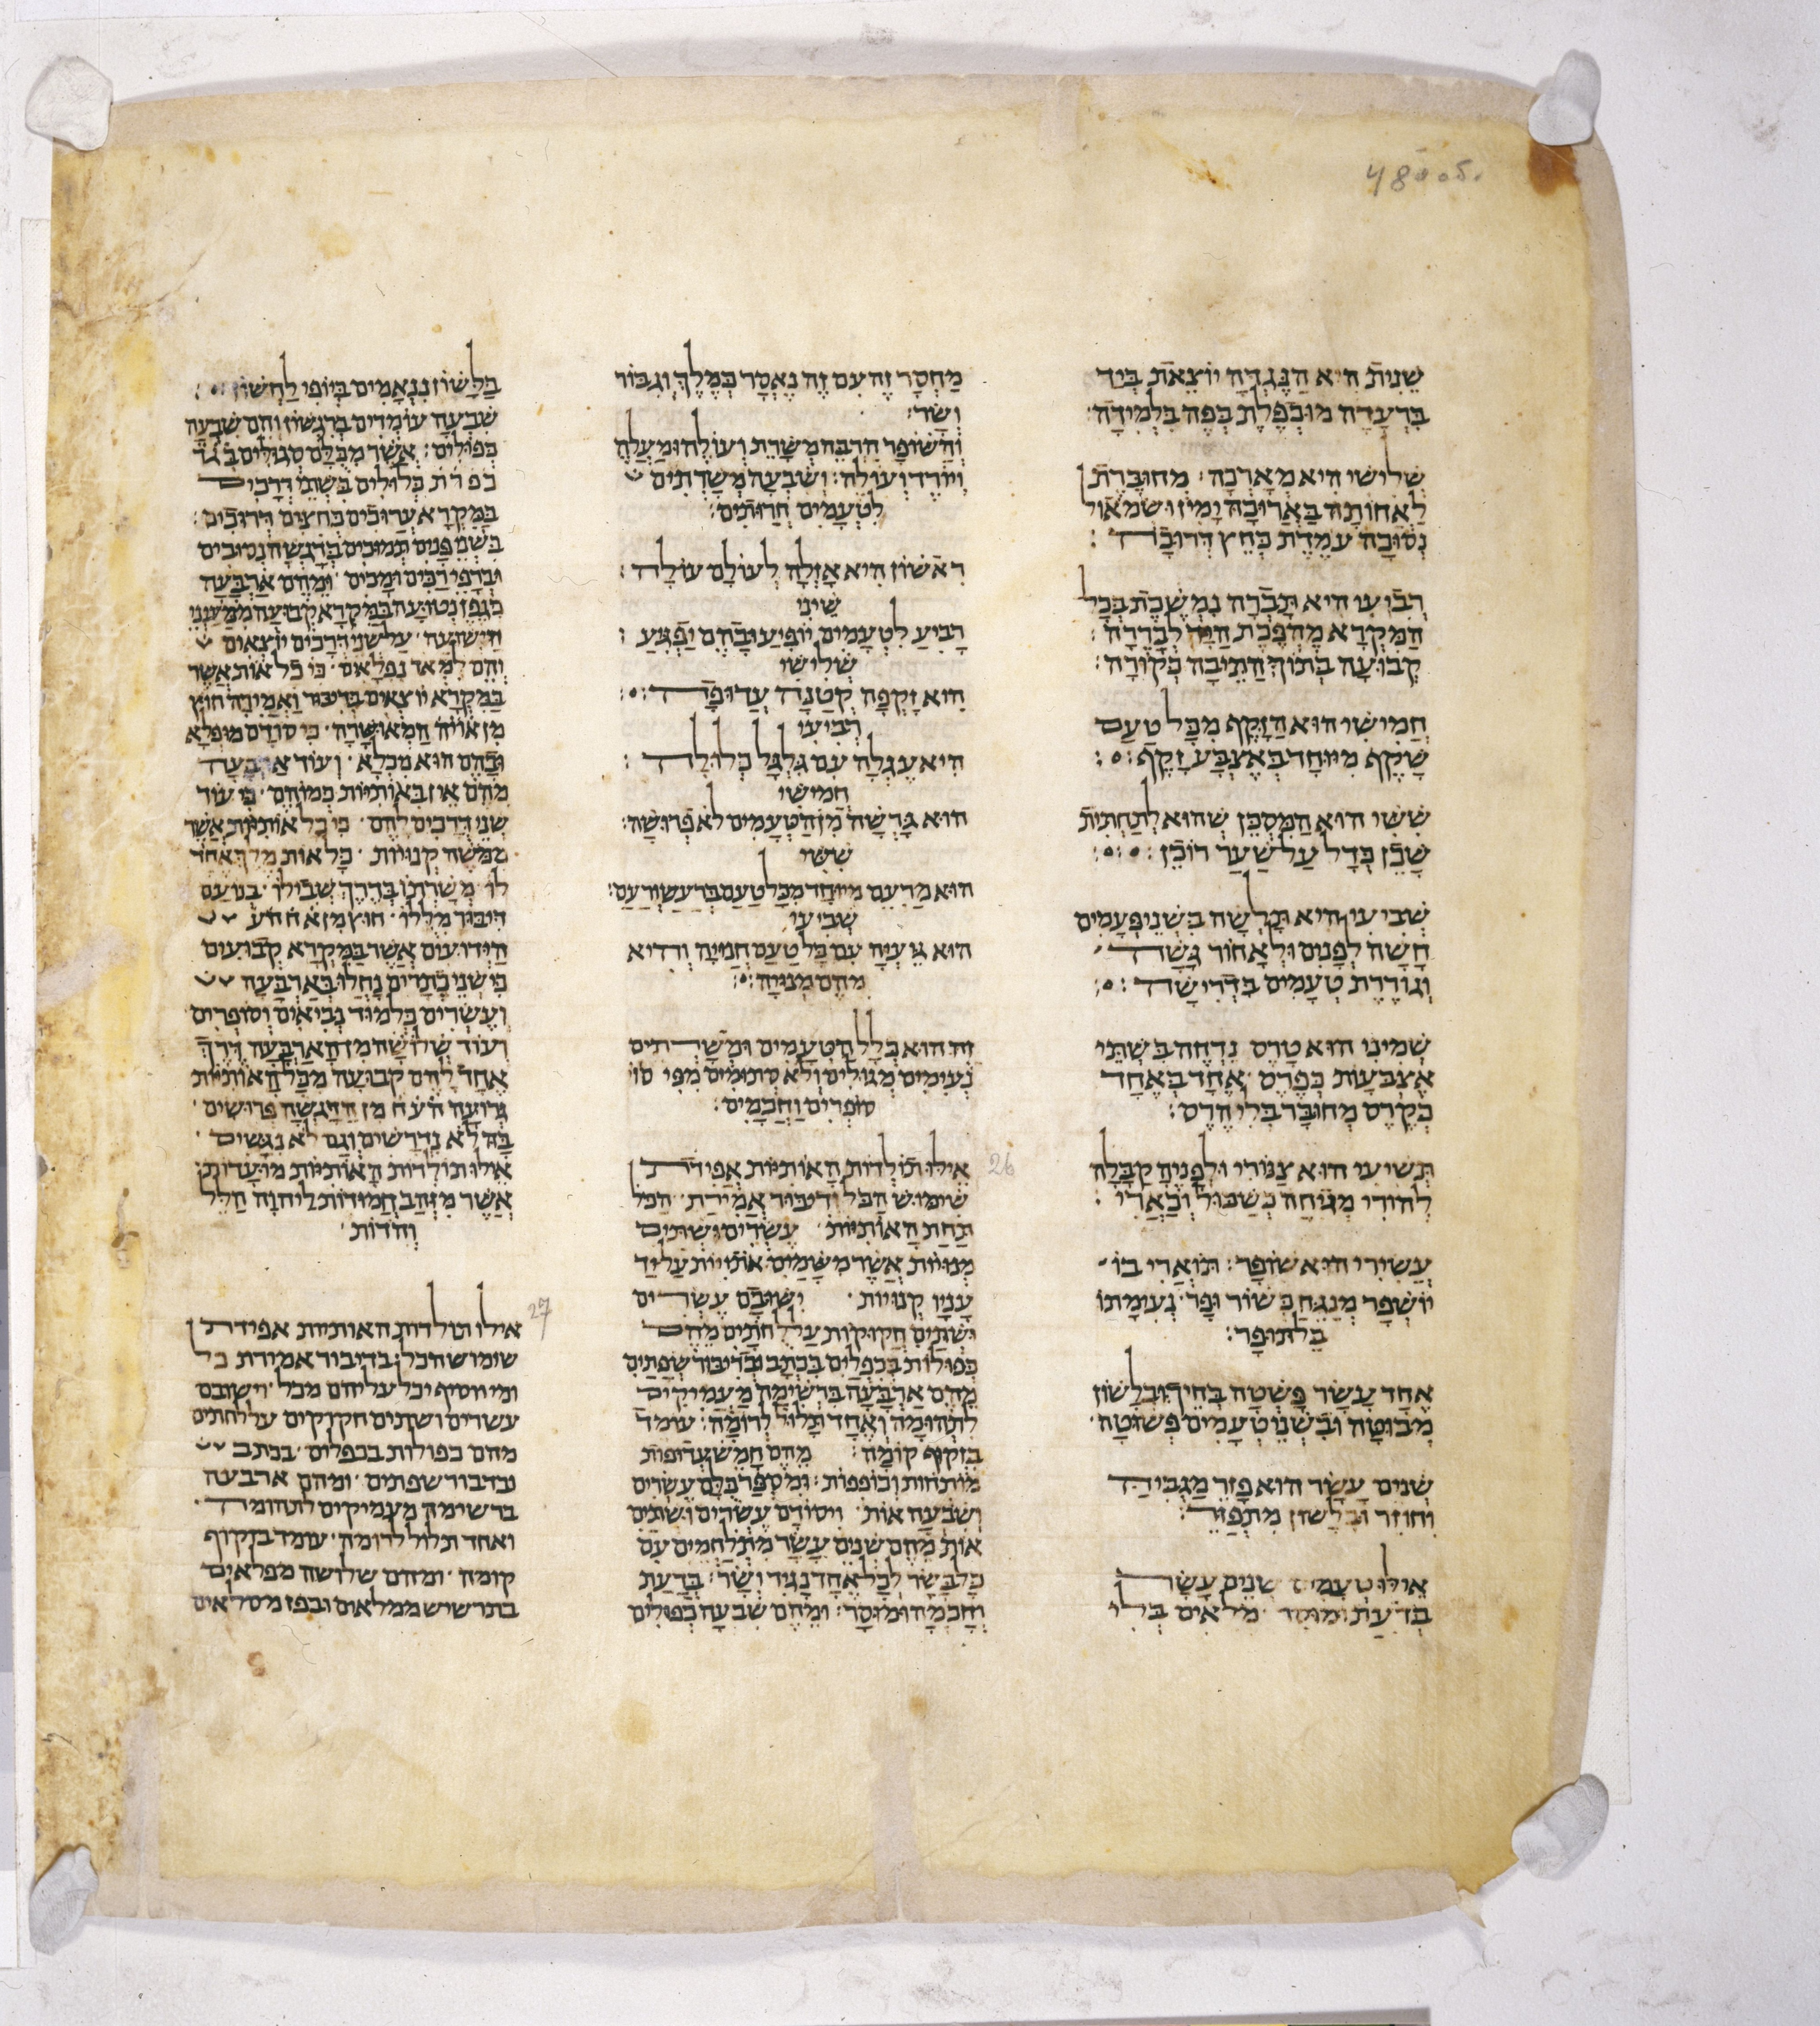 48 об.
שנית היא הנגדה יוצאת ביד
ברעדה מוכפלת כפה בלמידה
שלישי היא מארכה מחוברת
לאחותה בארוכה ימין ושמאול
נסובה עמדת כחץ דרובה
רביעי היא תברה נמשכת בכל
המקרא מהפכת לבררה
קבועה בתוך התיבה כקורה
חמישי הוא הזקף מכל טעם
שקף מיוחד באצבע זקף
ששי הוא המסכן שהוא לתחתית
שכן בדל על שער רוכן
שביעי היא תלשה בשני פעמים
חשה לפנים ולאחור גשה
וגודרת טעמים בדרישה
שמיני הוא טרס נדחה בשתי
אצבעות כפרס אחד באחד
כקרס מחובר בלי הרס
תשיעי הוא צנורי ולפניה קבלה
להורי מגיחה כשכול וכארי
עשירי הוא שופר תוארי בו
יושפר מנגח כשור ופר נעימתו
בלתופר
אחד עשר פשטה בחיך ובלשון
מבוטה ובשני טעמים פשוטה
שנים עשר הוא פזר מגביה
וחוזר ובלשון מתפזר
אילו טעמים שנים עשר
בדעת ומוסר מלאים בלי
מחסר זה עם זה נאסר כמלך וגבור
ושר
והשופר הרבה משרת ועולה ומעלה
ויורד ועולה ושבעה משרתים
לטעמים חרותים
ראשון היא אזלה לעולם עולה
שיני
רביע לטעמים יופיע ובהם יפגע
שלישי
היא זקפה קטנה עדופה
רביעי
היא עגלה עם גלגל כלולה
חמישי
הוא גרשה מן הטעמים לא פרושה
ששי
הוא מרעם מיוחד מכל טעם ברעש ורעם
שביעי
הוא געיה עם כל טעם חנויה והיא
מהם מנויה
זה הוא כלל הטעמים ומשרתים
נעימים מגולים ולא סתומים מפי סו
סופרים וחכמים
אילו תולדות האותיות אפידת 26
שימוש הכל ודיבור אמירת הכל
תחת האותיות עשרים ושתים
מנויות אשר משמים אותיות על יד
עניו קנויות ישובם עשרים
ושתים חקוקות על לחתים מהם
כפולות בכפלים בכתב ובדיבור שפתים
מהם ארבעה ברשימה מעמיקים
לתהומה ואחד תלול לרומה עומד
בזקוף קומה מהם חמש עדופות
מותחות וכופפות ומספר כלם עשרים
ושבעה אות ויסודם עשרים ושתים
אות מהם שנים עשר מתלחמים עם
כל בשר לכל אחד נגיד ושר בדעת
וחכמה ומוסר ומהם שבעה כפולים
בלשון ננאמים ביופי לחשון
שבעה עומדים ברגשון והם שבעה
כפולים אשר מכלם סגולים ב׳ג׳ד׳
כ׳פ׳ר׳ת׳ כלולים בשתי דרכים
במקרא ערוכים כחצים דרוכים
בשני פנים תמוכים ברגשה נסוכים
וברפי רכים ומכים ומהם ארבעה
כגפן נטועה במקרא קבועה ממעיני
הישועה על שני דרכים יוצאים
והם למאד נפלאים כי כל אות אשר
במקרא יוצאים בדיבור ואמירה חוץ
מן או׳י׳ה׳ המאושרה כי סודם מופלא
ובהם הוא מכלא ועוד ארבעה
מהם אין באותיות כמוהם כי עוד
שני דרכים להם כי כל אותיות אשר
ממשה קנויות כל אות מלך אחד
לו משרתו בדרך שבילו בנועם
היבור מללו חוץ מן א׳ח׳ה׳ע׳
הידועים אשר במקרא קבועים
כי שני כתרים נחלו בארבעה
ועשרים בלמוד נביאים וסופרים
ועוד שלושה מן הארבעה דרך
אחד להם קבועה מכל האותיות
גרועה ה׳ע׳ח׳ מן הדגשה פרושים
בה לא נדרשים וגם לא נגשים
אילו תולדות האותיות מועדות
אשר מזהב חמודות ליהוה חלל
והודות
אילו תולדות האותיות אפידת 27
שימוש הכל בדיבור אמירת כל
ומי יוסיף יכל עליהם מכל וישובם
עשרים ושתים חקוקים על לחתים
מהם כפולות בכפלים בכתב
ובדבור שפתים ומהם ארבעה
ברשימה מעמיקים לתהומה
ואחד תלול לרומה עומד בזקוף
קומה ומהם שלושה מפלאים
בתרשיש ממלאים ובפז מסלאים